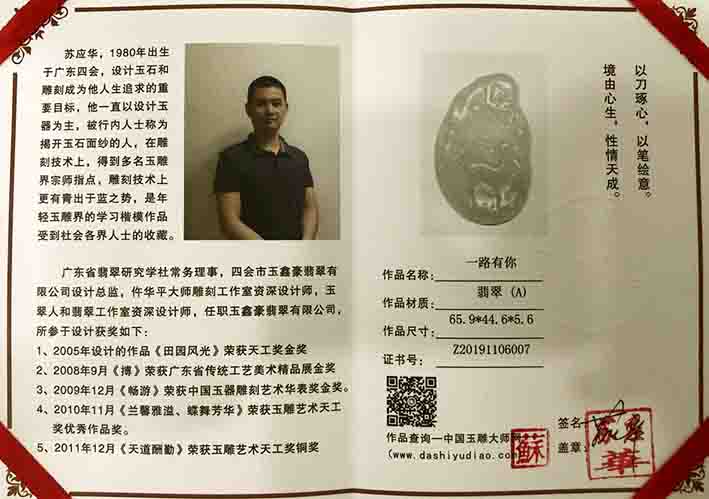 苏应华，1980年出生
于广东四会，设计玉石和
雕刻成为他人生追求的重
要目标，他一直以设计玉
器为主，被行内人士称为
揭开玉石面纱的人，在雕
刻技术上，得到多名玉雕
界宗师指点，雕刻技术上
更有青出于蓝之势，是年
轻玉雕界的学习楷模作品
受到社会各界人士的收藏。
广东省翡翠研究学社常务理事，四会市玉鑫豪翡翠有
限公司设计总监，仵华平大师雕刻工作室资深设计师，玉
翠人和翡翠工作室资深设计师，任职玉鑫豪翡翠有限公司，
所参于设计获奖如下：
1、2005年设计的作品《田园风光》荣获天工奖金奖
2、2008年9月《博》荣获广东省传统工艺美术精品展金奖
3、2009年12月《畅游》荣获中国玉器雕刻艺术华表奖金奖。
4、2010年11月《兰馨雅溢、蝶舞芳华》荣获玉雕艺术天工
奖优秀作品奖。
5、2011年12月《天道酬勤》荣获玉雕艺术天工奖铜奖
以刀琢心，以笔绘意。
境由心生，性情天成。
作品名称：一路有你
作品材质：翡翠（A）
作品尺寸：65.9*44.6*5.6
证书号：Z20191106007
作品查询—中国玉雕大师网
(www.dashiyudiao.com)
蘇
签名：
盖章：
華